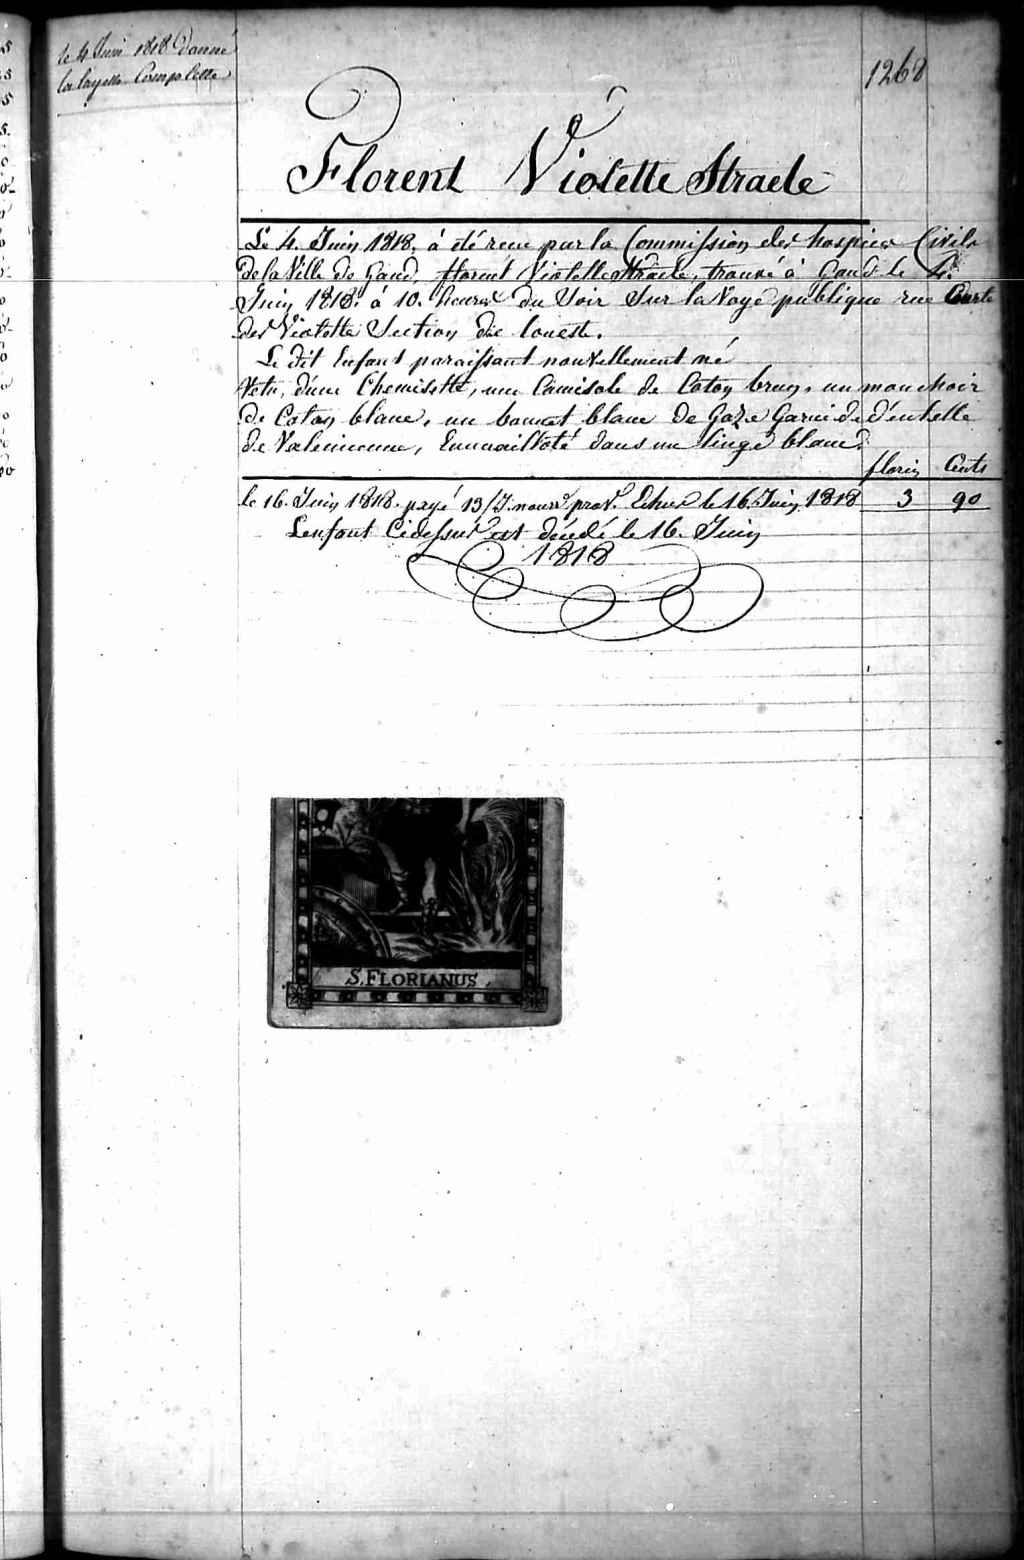 le 4 Juin 1818 donné
la layette Complette
1268
Florent Violette Straete
Le 4. Juin 1818. à été recu par la Commission des hospices Civils
de la Ville de Gand, florent Violette Straete, trouvé à Gand le 4.
Juin 1818. à 10. heures du Soir Sur la Voye publique rue Courte
des Violette Section die louest.
Le dit Enfant paraissant nouvellement né
Vetu, d'une Chemisette, une Camisole de Coton brun, un mouchoir
de Coton blanc, un bonnet blanc de Gaze Garni de d'entelle
de Valencienne, Emmailloté dans un linge blanc.
florin Cents
le 16. Juin 1818. payé 13/J. nourr. prov. Echus le 16. Juin 1818 3 90
Lenfant Cidessus est décédé le 16. Juin
1818
S. FLORIANUS.